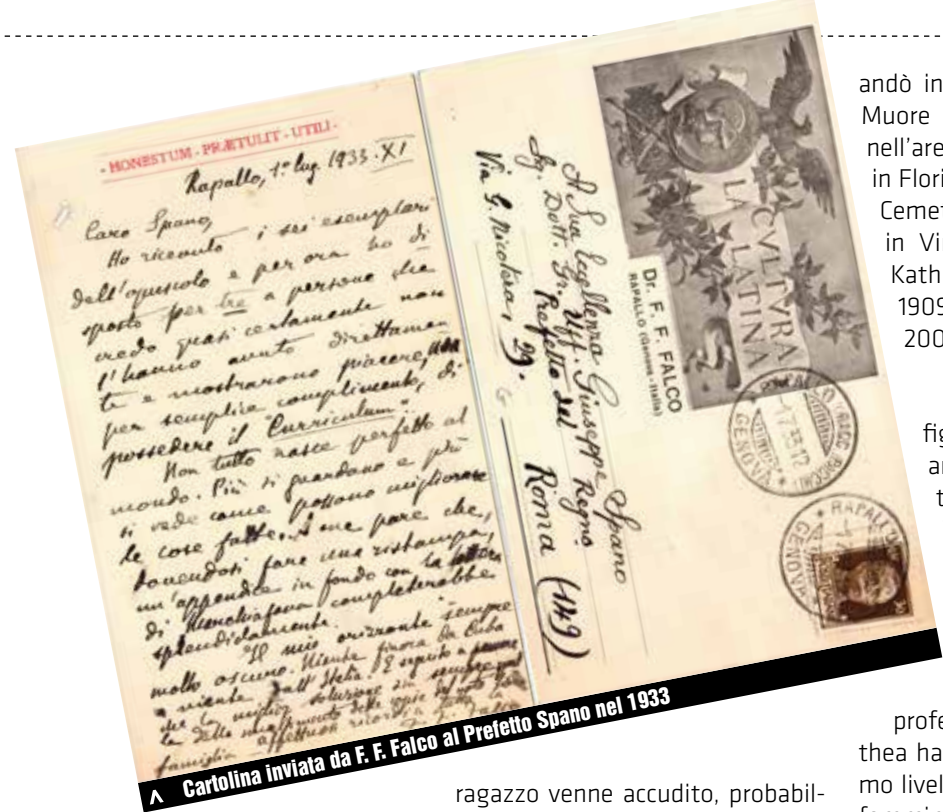 - HONESTUM - PRÆTULIT - UTILI -
Rapallo, 1º lug. 1933. XI
Caro Spano,
Ho ricevuto i sei esemplari
dell'opuscolo e per ora ho di
sposto per tre a persone che
credo quasi certamente non
l'hanno avuto direttamen
te e mostrarono piacere, non
per semplice complimento, di
possedere il "Curriculum".
Non tutto nasce perfetto al
mondo. Più si guardano e più
si vede come possono migliorare
le cose fatte. A me pare che,
dovendosi fare una ristampa,
un'appendice in fondo con la lettera
di completerebbe
splendidamente.
Il mio orizzonte sempre
molto oscuro. Niente finora da Cuba
e niente dall'Italia. E seguito a pensare
che la miglior soluzione sia sempre
la dello delle copie del
famiglia affettuosi ricordi
LA CVLTVRA
LATINA
Dr. F. F. FALCO
RAPALLO (Genova - Italia)
A Sua Eccellenza Giuseppe Spano
Sg. Dott. Gr. Uff.
Prefetto del Regno
Via G. Nicotera, 29.
Roma (149)
GENOVA
RAPALLO
GENOVA
^ Cartolina inviata da F. F. Falco al Prefetto Spano nel 1933
ragazzo venne accudito, probabil-
andò in
Muore
nell'are
in Flori
Cemet
in Vir
Kath
1909
200
fig
ar
t
profe
thea ha
mo livel